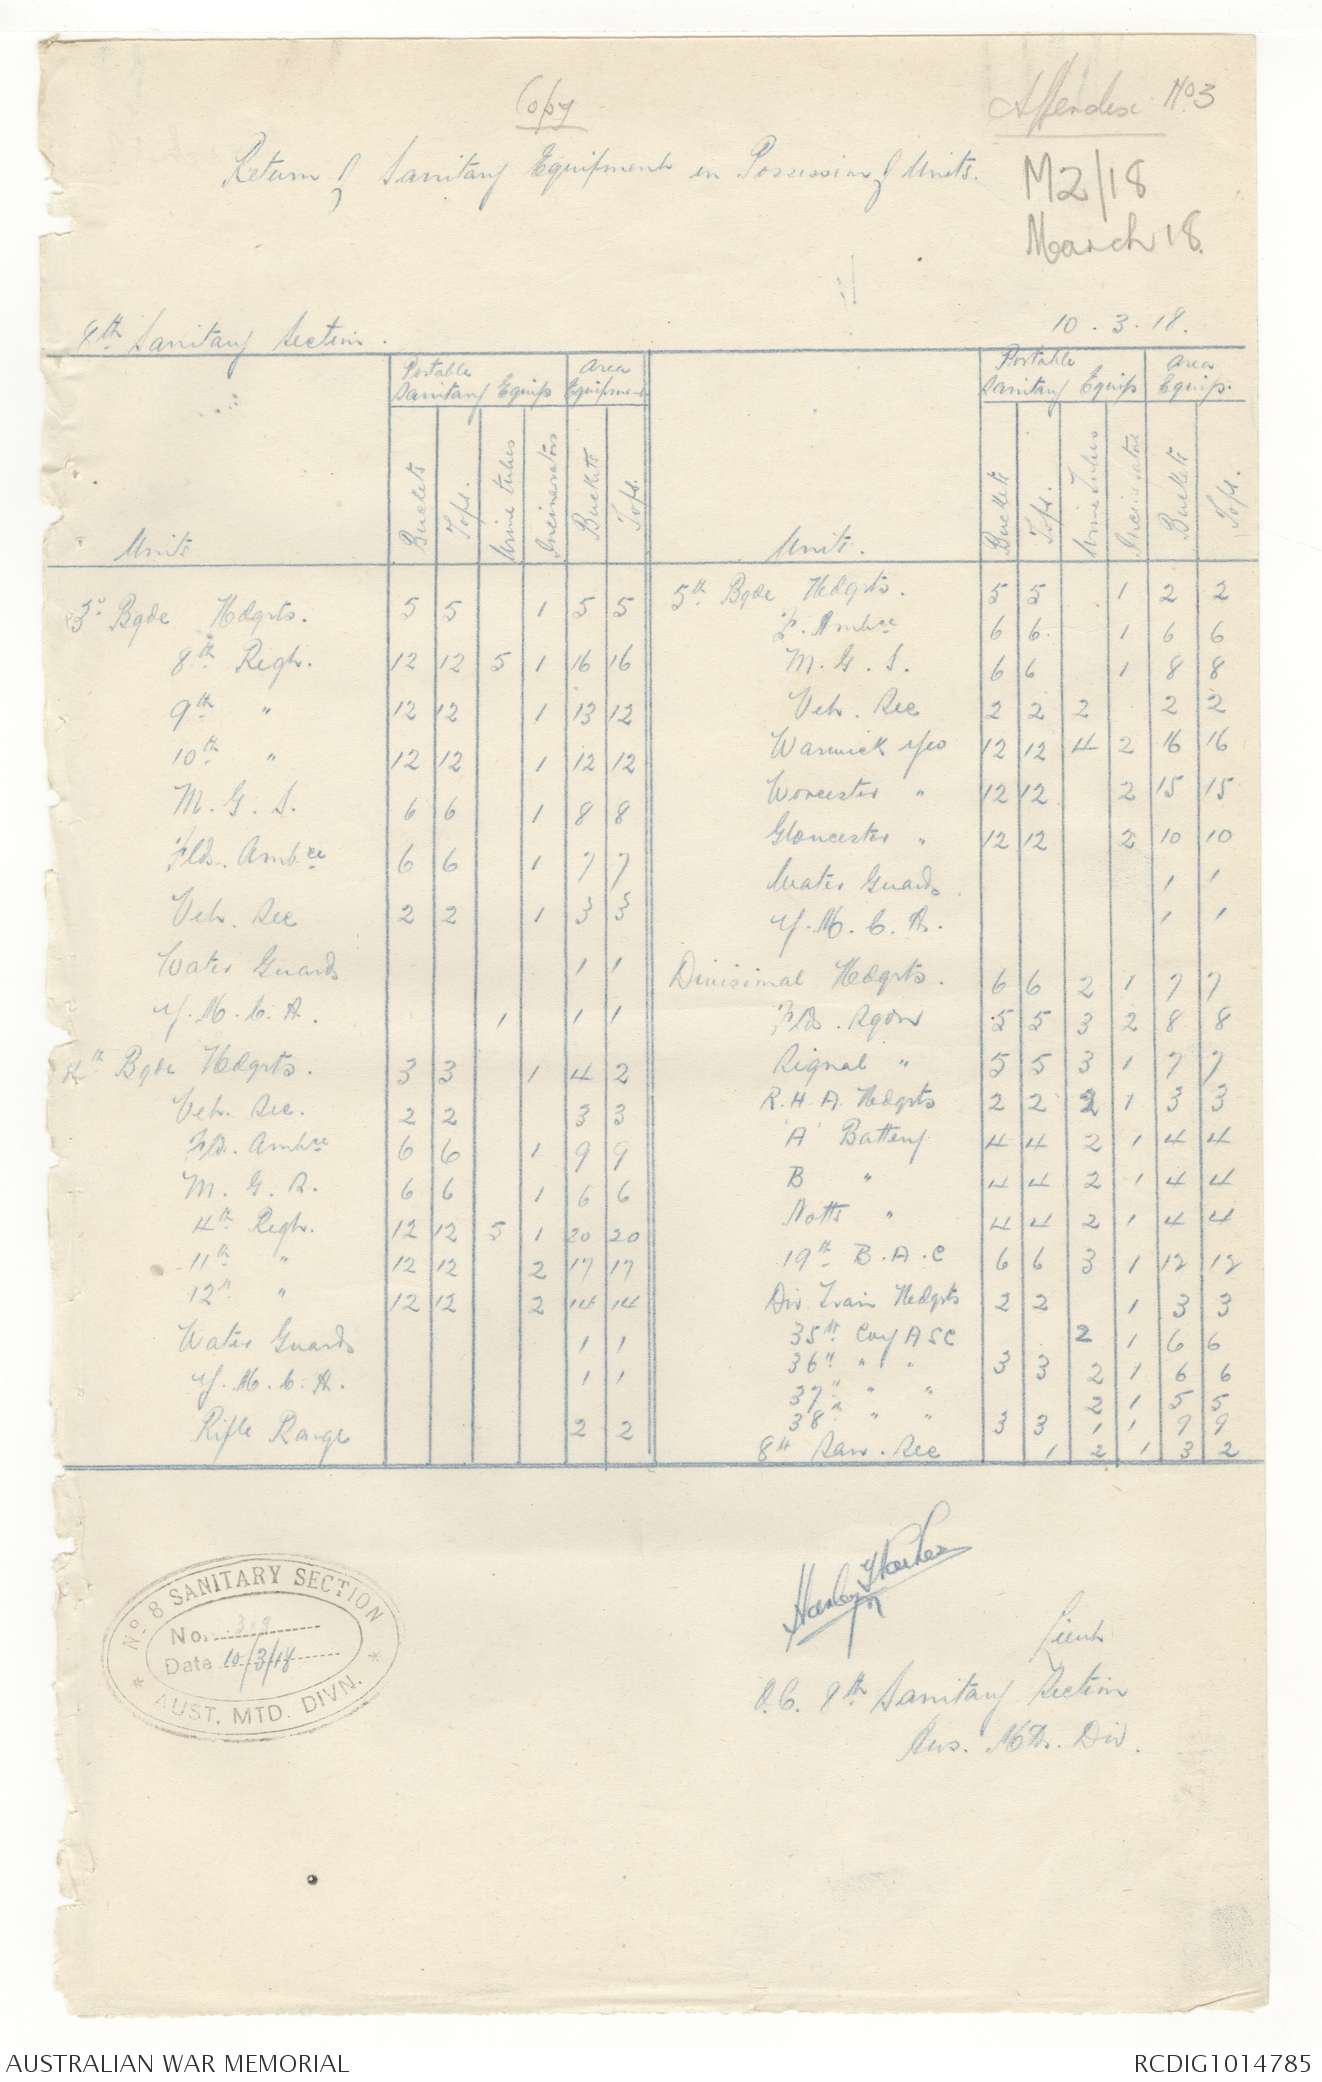 Copy
Appendix No 3
Return of Sanitary Equipment in Possession of Units.
M2/18
March 18
8th Sanitary Section.
10.3.18.
Portable Sanitary Equip | Area Equipment
Units | Buckets | Tops. | Urine tubes | Incinerators | Buckets | Tops.
3rd Bgde Hdqrts. | 5 | 5 | | 1 | 5 | 5
8th Regt. | 12 | 12 | 5 | 1 | 16 | 16
9th " | 12 | 12 | | 1 | 13 | 12
10th " | 12 | 12 | | 1 | 12 | 12
M.G.S. | 6 | 6 | | 1 | 8 | 8
Fld. Ambce | 6 | 6 | | 1 | 7 | 7
Vet. Sec | 2 | 2 | | 1 | 3 | 3
Water Guards | | | | | 1 | 1
Y.M.C.A. | | | 1 | | 1 | 1
4th Bgde Hdqrts. | 3 | 3 | | 1 | 4 | 2
Vet. Sec. | 2 | 2 | | | 3 | 3
Fld. Ambce | 6 | 6 | | 1 | 9 | 9
M.G.S. | 6 | 6 | | 1 | 6 | 6
4th Regt. | 12 | 12 | 5 | 1 | 20 | 20
11th " | 12 | 12 | | 2 | 17 | 17
12th " | 12 | 12 | | 2 | 14 | 14
Water Guards | | | | | 1 | 1
Y.M.C.A. | | | | | 1 | 1
Rifle Range | | | | | 2 | 2
Portable Sanitary Equip | Area Equip.
Unit. | Buckets | Tops. | Urine Tubes | Incinerators | Buckets | Tops.
5th Bgde Hdqrts. | 5 | 5 | | 1 | 2 | 2
F. Ambce | 6 | 6 | | 1 | 6 | 6
M.G.S. | 6 | 6 | | 1 | 8 | 8
Vet. Sec | 2 | 2 | 2 | | 2 | 2
Warwick Yeo | 12 | 12 | 4 | 2 | 16 | 16
Worcester " | 12 | 12 | | 2 | 15 | 15
Gloucester " | 12 | 12 | | 2 | 10 | 10
Water Guards | | | | | 1 | 1
Y.M.C.A. | | | | | 1 | 1
Divisional Hdqrts. | 6 | 6 | 2 | 1 | 7 | 7
Fld. Sqdn | 5 | 5 | 3 | 2 | 8 | 8
Signal " | 5 | 5 | 3 | 1 | 7 | 7
R.H.A. Hdqrts | 2 | 2 | 2 | 1 | 3 | 3
'A' Battery | 4 | 4 | 2 | 1 | 4 | 4
B " | 4 | 4 | 2 | 1 | 4 | 4
Notts " | 4 | 4 | 2 | 1 | 4 | 4
19th B.A.C | 6 | 6 | 3 | 1 | 12 | 12
Div. Train Hdqrts | 2 | 2 | | 1 | 3 | 3
35th Coy ASC | | | 2 | 1 | 6 | 6
36th " " | 3 | 3 | 2 | 1 | 6 | 6
37th " " | | | 2 | 1 | 5 | 5
38th " " | 3 | 3 | 1 | 1 | 9 | 9
8th San. Sec | | 1 | 2 | 1 | 3 | 2
Lieut
O.C. 8th Sanitary Section
Aus. Mtd. Div.
No. 8 SANITARY SECTION
No. 319
Date 10/3/18
* AUST. MTD. DIVN. *
AUSTRALIAN WAR MEMORIAL
RCDIG1014785